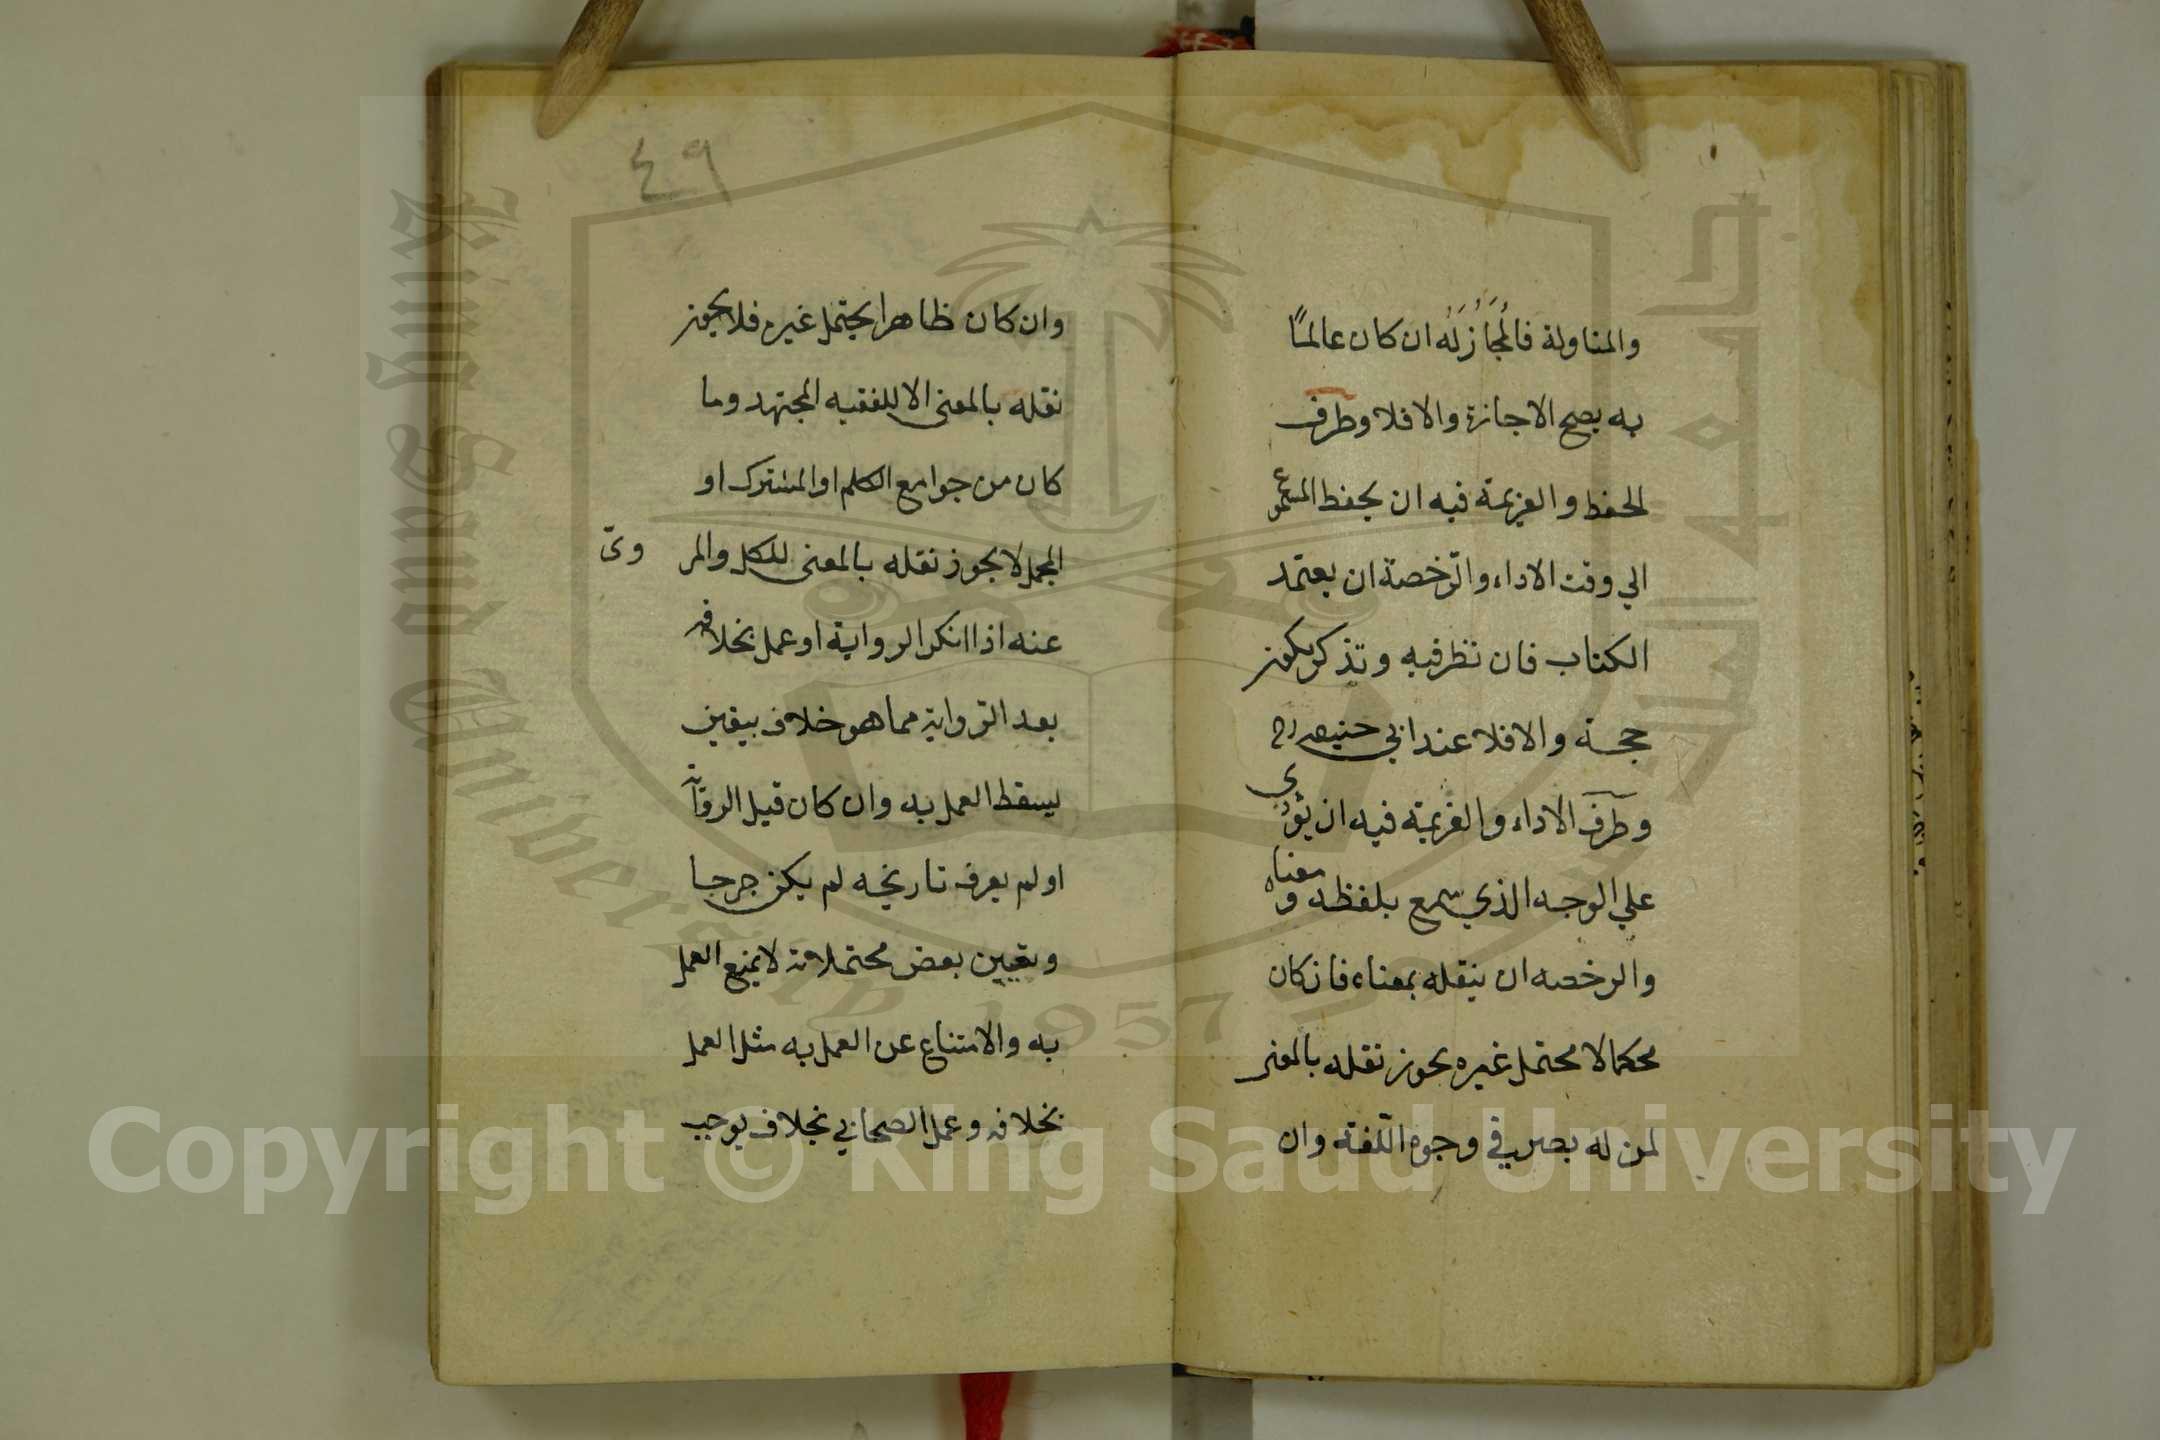 والمناولة فالمُجَازُ لَهُ ان كان عالمًا
به يصح الاجازة والا فلا وطرف
الحفظ والعزيمة فيه ان يحفظ المسموع
الي وقت الاداء والرّخصة ان يعتمد
الكتاب فان نظر فيه وتذكر يكون
حجة والا فلا عند ابي حنيفه رح
وطرف الاداء والعزيمة فيه ان يؤدي
علي الوجه الذي سمع بلفظه ومعناه
والرخصه ان ينقله بمعناه فان كان
محكما لا محتمل غيره يجوز نقله بالمعنى
لمن له بصر في وجوه اللّغة وان
٤٩
وان كان ظاهرا يحتمل غيره فلا يجوز
نقله بالمعنى الا للفقيه المجتهد وما
كان من جوامع الكلم او المشترك او
المجمل لا يجوز نقله بالمعنى للكل والمر ويّ
عنه اذا انكر الرواية او عمل بخلافه
بعد الرواية مما هو خلاف بيقين
يسقط العمل به وان كان قبل الرواية
او لم يعرف تاريخه لم يكن جرحا
وتعيين بعض محتملاته لا يمنع العمل
به والامتناع عن العمل به مثل العمل
بخلافه وعمل الصحابي بخلاف يوجب
King Saud University
جامعة الملك سعود
1957
Copyright © King Saud University